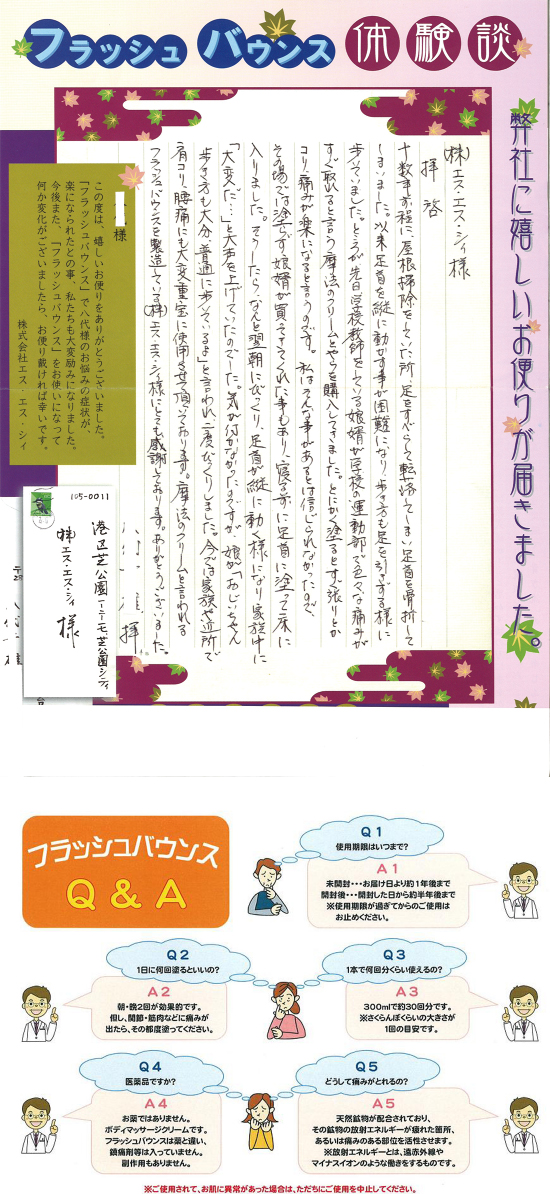 フラッシュ バウンス 体験談
弊社に嬉しいお便りが届きました。
(株)エス・エス・シィ様
拝啓
十数年程に、屋根掃除をしていた所、足をすべらして転落してしまい足首を骨折して
しまいました。以来足首を縦に動かす事が困難になり、歩き方も足を引きずる様に
歩いていました。ところが先日学校教師をしている娘婿が学校の運動部で色々な痛みが
すぐ取れると言う魔法のクリームとやらを購入してきました。とにかく塗るとすぐ張りとか
コリ、痛みが楽になると言うのです。私はそんな事があるとは信じられなかったので、
その場では塗らず、娘婿が買ってきてくれた事もあり、寝る前に足首に塗って床に
入りました。そうしたらなんと翌朝にびっくり、足首が縦に動く様になり家族中に
「大変だ…」と大声を上げていたのでした。気が付かなかったのですが、娘が「おじいちゃん
歩き方も大分、普通に歩いているよ」と言われ二度びっくりしました。今では家族や近所で
肩コリ、腰痛にも大変重宝に使用させて頂いております。魔法のクリームと言われる
フラッシュバウンスを製造している(株)エス・エス・シィ様にとても感謝しております。ありがとうございました。
拝
様
この度は、嬉しいお便りをありがとうございました。
「フラッシュバウンス」で八代様のお悩みの症状が、
楽になられたとの事、私たちも大変励みになりました。
今後また、「フラッシュバウンス」をお使いになって
何か変化がございましたら、お便り戴ければ幸いです。
株式会社エス・エス・シィ
105-0011
港区芝公園一ー二ー七芝公園シティ
(株)エス・エス・シィ 様
フラッシュバウンス
Q & A
Q1
使用期限はいつまで?
A1
未開封・・・お届け日より約1年後まで
開封後・・・開封した日から約半年後まで
※使用期限が過ぎてからのご使用は
お止めください。
Q2
1日に何回塗るといいの?
A2
朝・晩2回が効果的です。
但し、関節・筋肉などに痛みが
出たら、その都度塗ってください。
Q3
1本で何回分くらい使えるの?
A3
300mlで約30回分です。
※さくらんぼくらいの大きさが
1回の目安です。
Q4
医薬品ですか?
A4
お薬ではありません。
ボディマッサージクリームです。
フラッシュバウンスは薬と違い、
鎮痛剤等は入っていません。
副作用もありません。
Q5
どうして痛みがとれるの?
A5
天然鉱物が配合されており、
その鉱物の放射エネルギーが疲れた箇所、
あるいは痛みのある部位を活性させます。
※放射エネルギーとは、遠赤外線や
マイナスイオンのような働きをするものです。
※ご使用されて、お肌に異常があった場合は、ただちにご使用を中止してください。